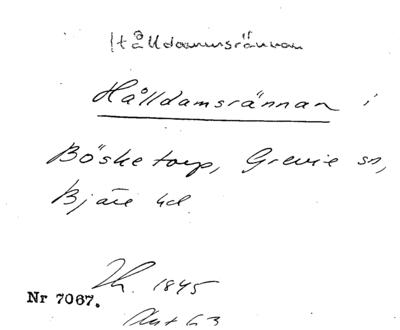 Hålldammsrännan
Hålldamsrännan i
Bösketorp, Grevie sn,
Bjäre hd.
1845
Nr 7067.
63